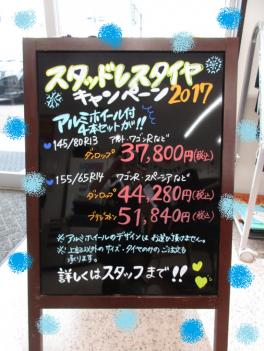 スタッドレスタイヤ
キャンペーン2017
アルミホイール付
4本セットが!!
145/80R13 アルト、ワゴンRなど
ダンロップ 37,800円(税込)
155/65R14 ワゴンR・スペーシアなど
ダンロップ 44,280円(税込)
ブリヂストン 51,840円(税込)
※アルミホイールのデザインはお選び頂けません。
※上記以外のサイズ・タイヤのみのご注文も
承ります。
詳しくはスタッフまで!!